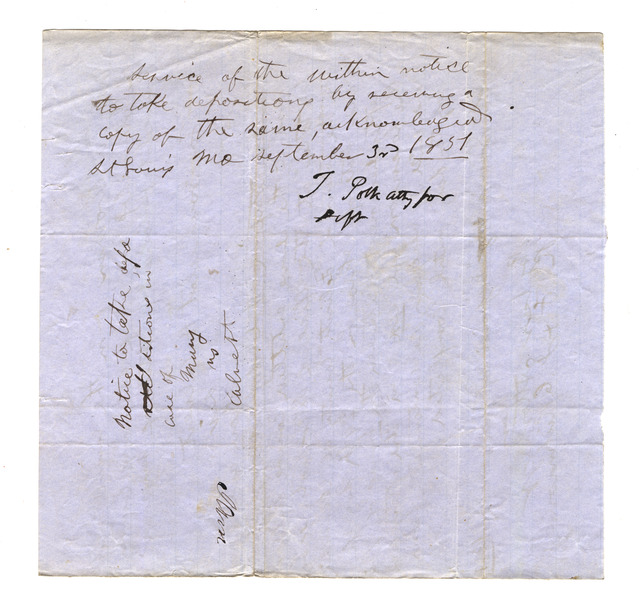 Service of the within notice
to take depositions by receiving a
copy of the same, acknowledged
St Louis Mo September 3rd 1851
T. Polk atty for
Deft
Notice to take depo
sitions in
case of
Mary
vs
Calvert